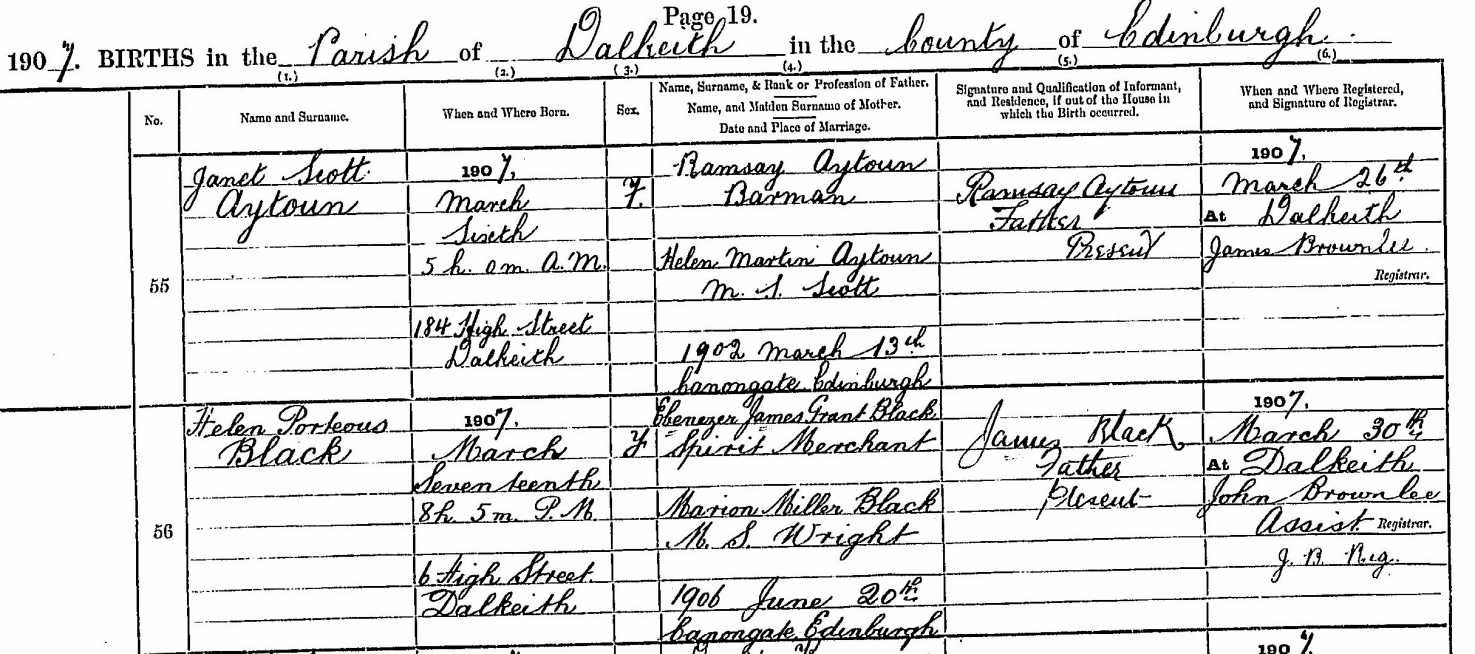 Page 19.
1907. BIRTHS in the Parish of Dalkeith in the County of Edinburgh.
(1.) (2.) (3.) (4.) (5.) (6.)
No.
Name and Surname.
When and Where Born.
Sex.
Name, Surname, & Rank or Profession of Father.
Name, and Maiden Surname of Mother.
Date and Place of Marriage.
Signature and Qualification of Informant,
and Residence, if out of the House in
which the Birth occurred.
When and Where Registered,
and Signature of Registrar.
55
Janet Scott
Aytoun
1907,
March
Sixth
5 h. 0 m. A.M.
184 High Street
Dalkeith
F.
Ramsay Aytoun
Barman
Helen Martin Aytoun
M. S. Scott
1902 March 13th
Canongate Edinburgh
Ramsay Aytoun
Father
Present
1907,
March 26th
At Dalkeith
James Brownlee.
Registrar.
56
Helen Porteous
Black
1907,
March
Seventeenth
8h. 5m. P.M.
6 High Street.
Dalkeith
F
Ebenezer James Grant Black
Spirit Merchant
Marion Miller Black
M. S. Wright
1906 June 20th
Canongate, Edinburgh
James Black
Father
Present
1907,
March 30th
At Dalkeith
John Brownlee
Assist. Registrar.
J. B. Reg.
1907